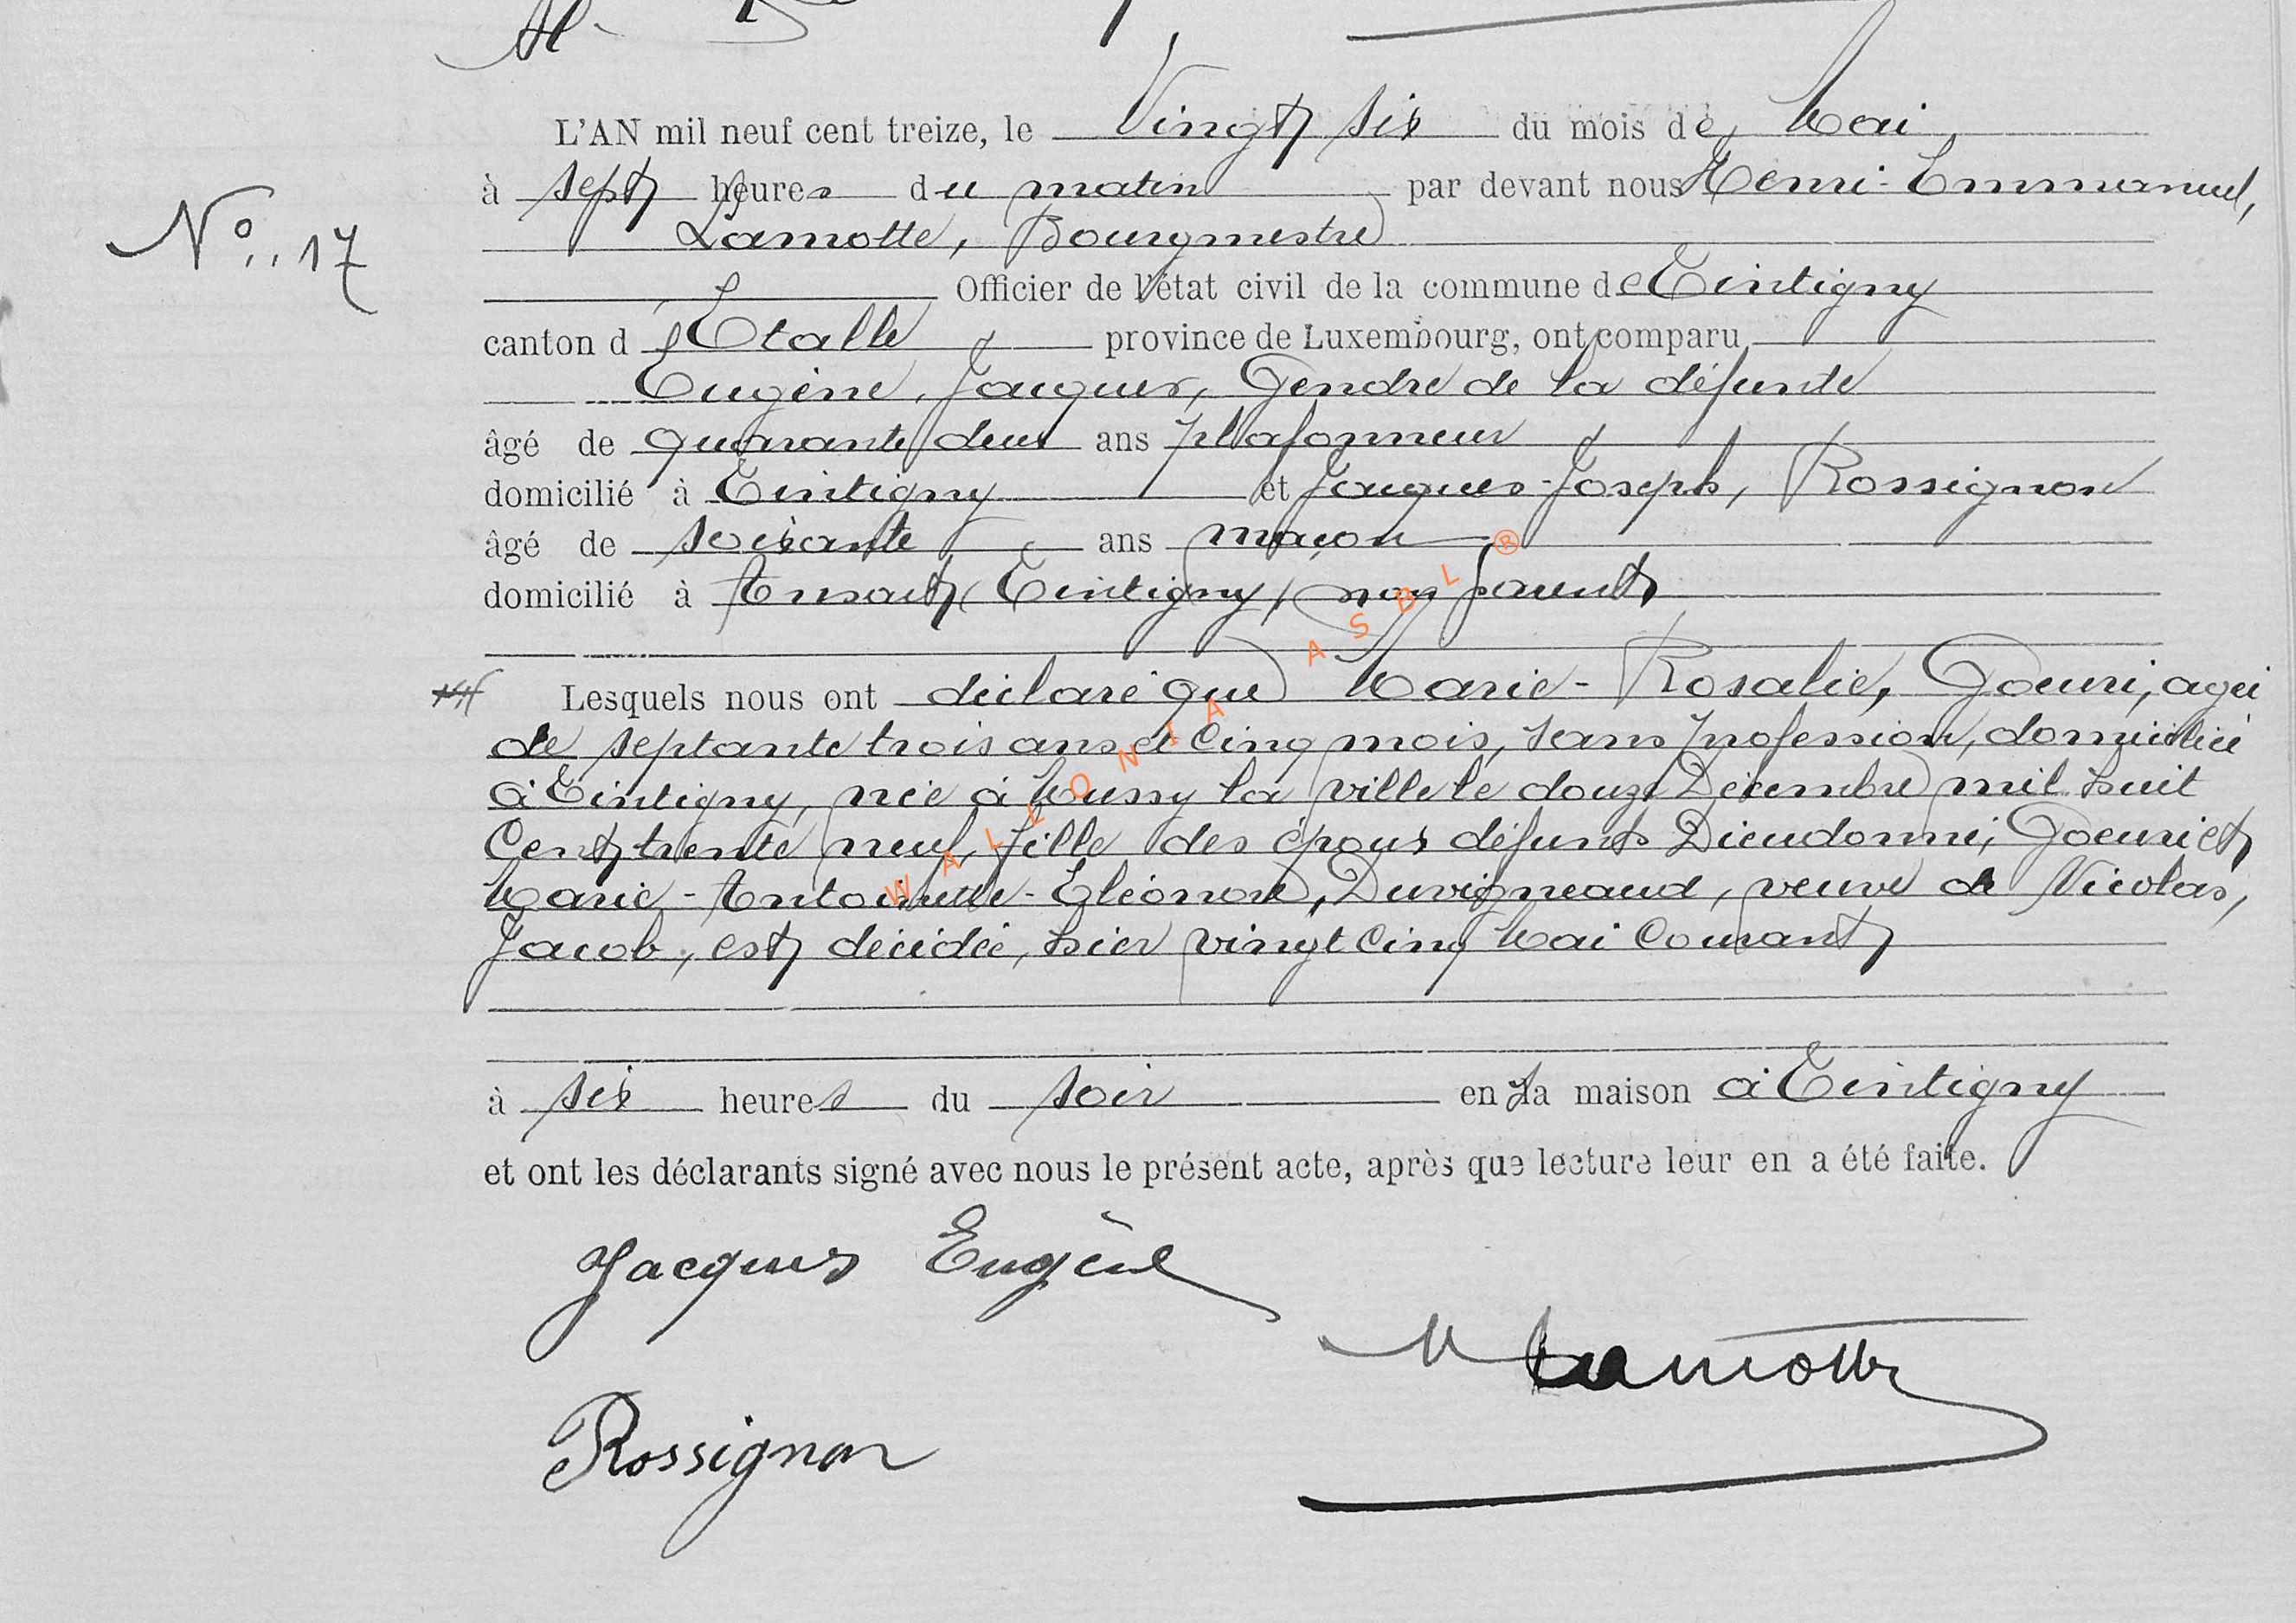 L'AN mil neuf cent treize, le Vingt six du mois de Mai
à sept heures du matin par devant nous Henri-Emmanuel,
N° 17
Lamotte, Bourgmestre
Officier de l'état civil de la commune de Tintigny
canton d'Etalle province de Luxembourg, ont comparu
Eugène, Jacques, Gendre de la défunte
âgé de quarante deux ans plafonneur
domicilié à Tintigny et Jacques-Joseph, Rossignon
âgé de soixante ans maçon
domicilié à Ansart (Tintigny) non parents
Lesquels nous ont déclaré que Marie-Rosalie, Goeuri, agée
de septante trois ans et cinq mois, sans profession, domiciliée
à Tintigny, née à Mussy la ville le douze Décembre mil huit
cent trente neuf, fille des époux défunts Dieudonné, Goeuri et
Marie-Antoinette-Eléonore, Duvigneaud, veuve de Nicolas,
Jacob, est décédée, hier vingt cinq Mai courant
à six heures du soir en sa maison à Tintigny
et ont les déclarants signé avec nous le présent acte, après que lecture leur en a été faite.
Jacques Eugène
Lamotte
Rossignon
WALLONIA ASBL ®